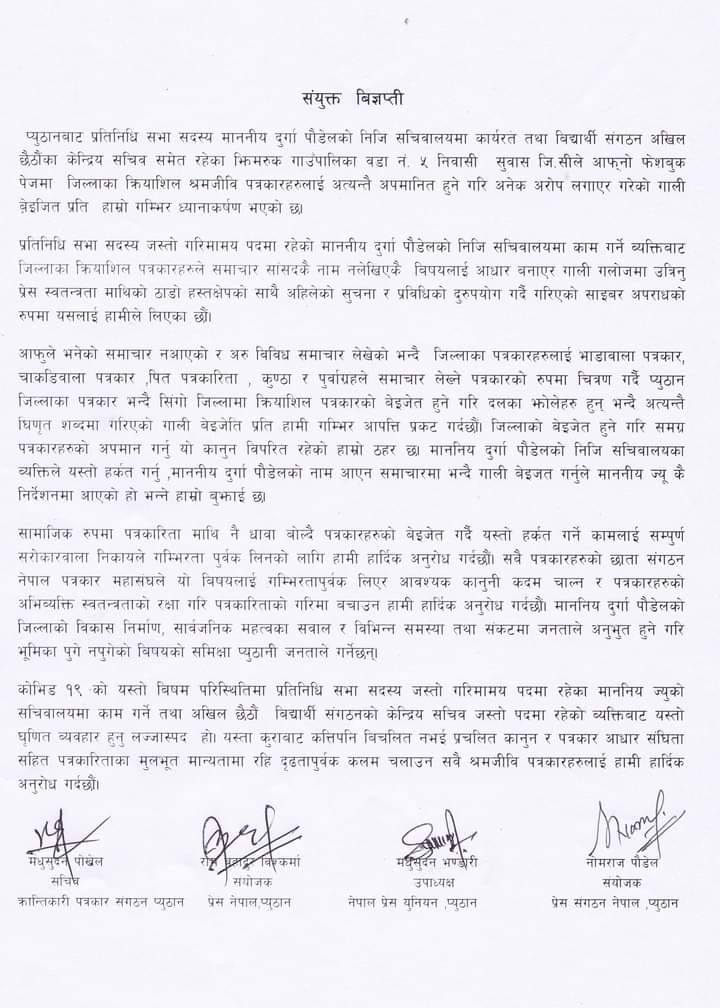 संयुक्त बिज्ञप्ती
प्युठानबाट प्रतिनिधि सभा सदस्य माननीय दुर्गा पौडेलको निजि सचिवालयमा कार्यरत तथा विद्यार्थी संगठन अखिल
छैठौंका केन्द्रिय सचिव समेत रहेका झिमरुक गाउंपालिका वडा नं. ५ निवासी सुवास जि.सीले आफ्नो फेशबुक
पेजमा जिल्लाका क्रियाशिल श्रमजीवि पत्रकारहरुलाई अत्यन्तै अपमानित हुने गरि अनेक अरोप लगाएर गरेको गाली
बेइजित प्रति हाम्रो गम्भिर ध्यानाकर्षण भएको छ।
प्रतिनिधि सभा सदस्य जस्तो गरिमामय पदमा रहेको माननीय दुर्गा पौडेलको निजि सचिवालयमा काम गर्ने व्यक्तिबाट
जिल्लाका क्रियाशिल पत्रकारहरुले समाचार सांसदकै नाम नलेखिएकै विषयलाई आधार बनाएर गाली गलोजमा उत्रिनु
प्रेस स्वतन्त्रता माथिको ठाडो हस्तक्षेपको साथै अहिलेको सुचना र प्रविधिको दुरुपयोग गर्दै गरिएको साइबर अपराधको
रुपमा यसलाई हामीले लिएका छौं।
आफुले भनेको समाचार नआएको र अरु विविध समाचार लेखेको भन्दै जिल्लाका पत्रकारहरुलाई भाडावाला पत्रकार,
चाकडिवाला पत्रकार ,पित पत्रकारिता , कुण्ठा र पुर्वाग्रहले समाचार लेख्ने पत्रकारको रुपमा चित्रण गर्दै प्युठान
जिल्लाका पत्रकार भन्दै सिंगो जिल्लामा क्रियाशिल पत्रकारको बेइजेत हुने गरि दलका झोलेहरु हुन् भन्दै अत्यन्तै
घिणृत शब्दमा गरिएको गाली बेइजेति प्रति हामी गम्भिर आपत्ति प्रकट गर्दछौं। जिल्लाको बेइजेत हुने गरि समग्र
पत्रकारहरुको अपमान गर्नु यो कानुन विपरित रहेको हाम्रो ठहर छ। माननिय दुर्गा पौडेलको निजि सचिवालयका
व्यक्तिले यस्तो हर्कत गर्नु ,माननीय दुर्गा पौडेलको नाम आएन समाचारमा भन्दै गाली बेइजत गर्नुले माननीय ज्यू कै
निर्देशनमा आएको हो भन्ने हाम्रो बुझाई छ।
सामाजिक रुपमा पत्रकारिता माथि नै धावा बोल्दै पत्रकारहरुको बेइजेत गर्दै यस्तो हर्कत गर्ने कामलाई सम्पुर्ण
सरोकारवाला निकायले गम्भिरता पुर्वक लिनको लागि हामी हार्दिक अनुरोध गर्दछौं। सवै पत्रकारहरुको छाता संगठन
नेपाल पत्रकार महासंघले यो विषयलाई गम्भिरतापुर्वक लिएर आवश्यक कानुनी कदम चाल्न र पत्रकारहरुको
अभिव्यक्ति स्वतन्त्रताको रक्षा गरि पत्रकारिताको गरिमा बचाउन हामी हार्दिक अनुरोध गर्दछौं। माननिय दुर्गा पौडेलको
जिल्लाको विकास निर्माण, सार्वजनिक महत्वका सवाल र विभिन्न समस्या तथा संकटमा जनताले अनुभुत हुने गरि
भूमिका पुगे नपुगेको विषयको समिक्षा प्युठानी जनताले गर्नेछन्।
कोभिड १९ को यस्तो बिषम परिस्थितिमा प्रतिनिधि सभा सदस्य जस्तो गरिमामय पदमा रहेका माननिय ज्युको
सचिवालयमा काम गर्ने तथा अखिल छैठौं विद्यार्थी संगठनको केन्द्रिय सचिव जस्तो पदमा रहेको व्यक्तिबाट यस्तो
घृणित व्यवहार हुनु लज्जास्पद हो। यस्ता कुराबाट कत्तिपनि बिचलित नभई प्रचलित कानुन र पत्रकार आधार संघिता
सहित पत्रकारिताका मुलभूत मान्यतामा रहि दृढतापुर्वक कलम चलाउन सवै श्रमजीवि पत्रकारहरुलाई हामी हार्दिक
अनुरोध गर्दछौं।
मधुसुदन पोखेल रोम बहादुर विश्कर्मा मधुसुदन भण्डारी नोमराज पौडेल
सचिव संयोजक उपाध्यक्ष संयोजक
क्रान्तिकारी पत्रकार संगठन प्युठान प्रेस नेपाल,प्युठान नेपाल प्रेस युनियन ,प्युठान प्रेस संगठन नेपाल ,प्युठान